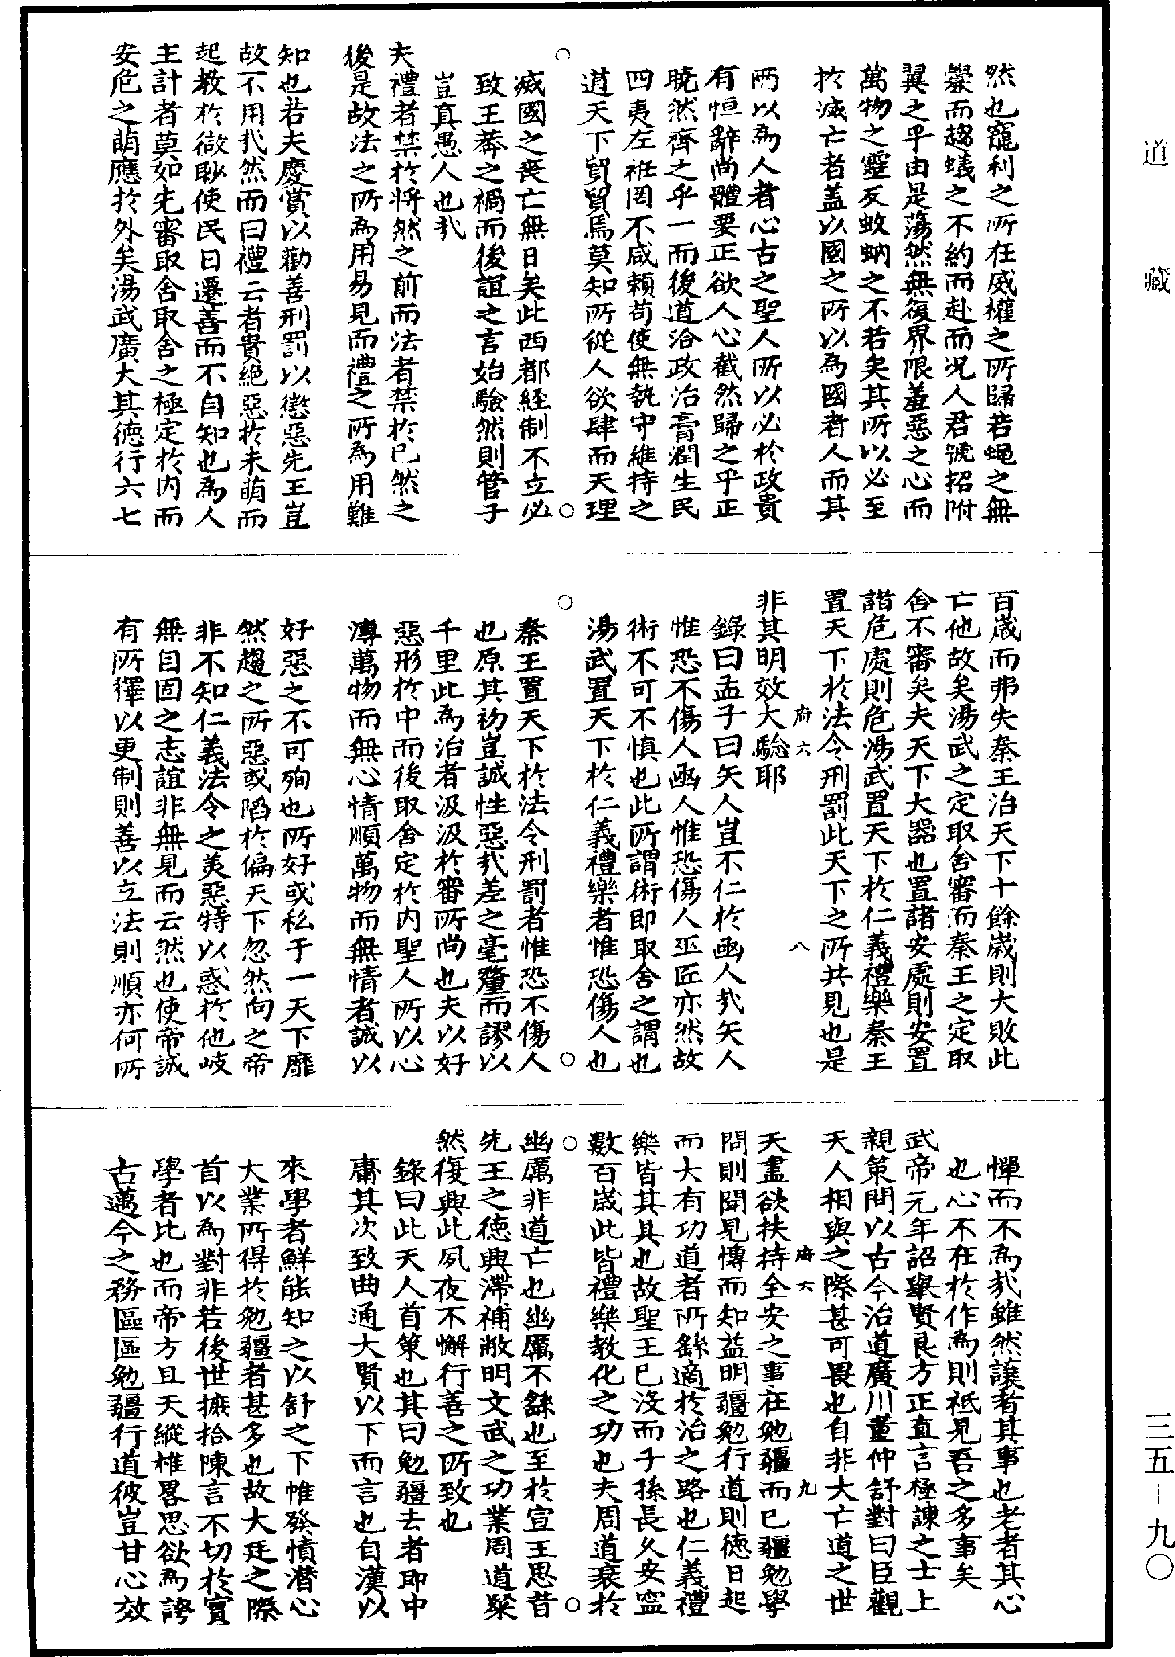 道藏
然也寵利之所在威權之所歸若蠅之無
釁而趨蟻之不約而赴而况人君號招附
翼之乎由是蕩然無復界限羞惡之心而
萬物之靈反蚊蚋之不若矣其所以必至
於滅亡者蓋以國之所以為國者人而其
所以為人者心古之聖人所以必於政貴
有恒辭尚體要正欲人心截然歸之乎正
曉然齊之乎一而後道洽政治膏潤生民
四夷左袵罔不咸賴苟使無執守維持之
道天下貿貿焉莫知所從人欲肆而天理
滅國之喪亡無日矣此西都經制不立必
致王莽之禍而後誼之言始驗然則管子
豈真愚人也哉
夫禮者禁於將然之前而法者禁於已然之
後是故法之所為用易見而禮之所為用難
知也若夫慶賞以勸善刑罰以懲惡先王豈
故不用哉然而曰禮云者貴絕惡於未萌而
起教於微眇使民日遷善而不自知也為人
主計者莫如先審取舍取舍之極定於內而
安危之萌應於外矣湯武廣大其德行六七
百歲而弗失秦王治天下十餘歲則大敗此
亡他故矣湯武之定取舍審而秦王之定取
舍不審矣夫天下大器也置諸安處則安置
諸危處則危湯武置天下於仁義禮樂秦王
置天下於法令刑罰此天下之所共見也是
府六 八
非其明效大驗耶
錄曰孟子曰矢人豈不仁於函人哉矢人
惟恐不傷人函人惟恐傷人巫匠亦然故
術不可不慎也此所謂術即取舍之謂也
湯武置天下於仁義禮樂者惟恐傷人也
秦王置天下於法令刑罰者惟恐不傷人
也原其初豈誠性惡哉差之毫釐而謬以
千里此為治者汲汲於審所尚也夫以好
惡形於中而後取舍定於內聖人所以心
溥萬物而無心情順萬物而無情者誠以
好惡之不可殉也所好或私于一天下靡
然趨之所惡或陷於偏天下忽然向之帝
非不知仁義法令之美惡特以惑於他岐
無自固之志誼非無見而云然也使帝誠
有所擇以更制則善以立法則順亦何所
憚而不為哉雖然讓者其事也老者其心
也心不在於作為則祗見吾之多事矣
武帝元年詔舉賢良方正直言極諫之士上
親策問以古今治道廣川董仲舒對曰臣觀
天人相與之際甚可畏也自非大亡道之世
府六 九
天盡欲扶持全安之事在勉疆而已疆勉學
問則聞見博而知益明疆勉行道則德日起
而大有功道者所繇適於治之路也仁義禮
樂皆其具也故聖王已沒而子孫長久安寧
數百歲此皆禮樂教化之功也夫周道衰於
幽厲非道亡也幽厲不繇也至於宣王思昔
先王之德興滯補敝明文武之功業周道粲
然復興此夙夜不懈行善之所致也
錄曰此天人首策也其曰勉疆云者即中
庸其次致曲通大賢以下而言也自漢以
來學者鮮能知之以舒之下帷發憤潛心
大業所得於勉疆者甚多也故大廷之際
首以為對非若後世摭拾陳言不切於實
學者比也而帝方且天縱惟畧思欲為誇
古邁今之務區區勉疆行道彼豈甘心效
三五－九〇